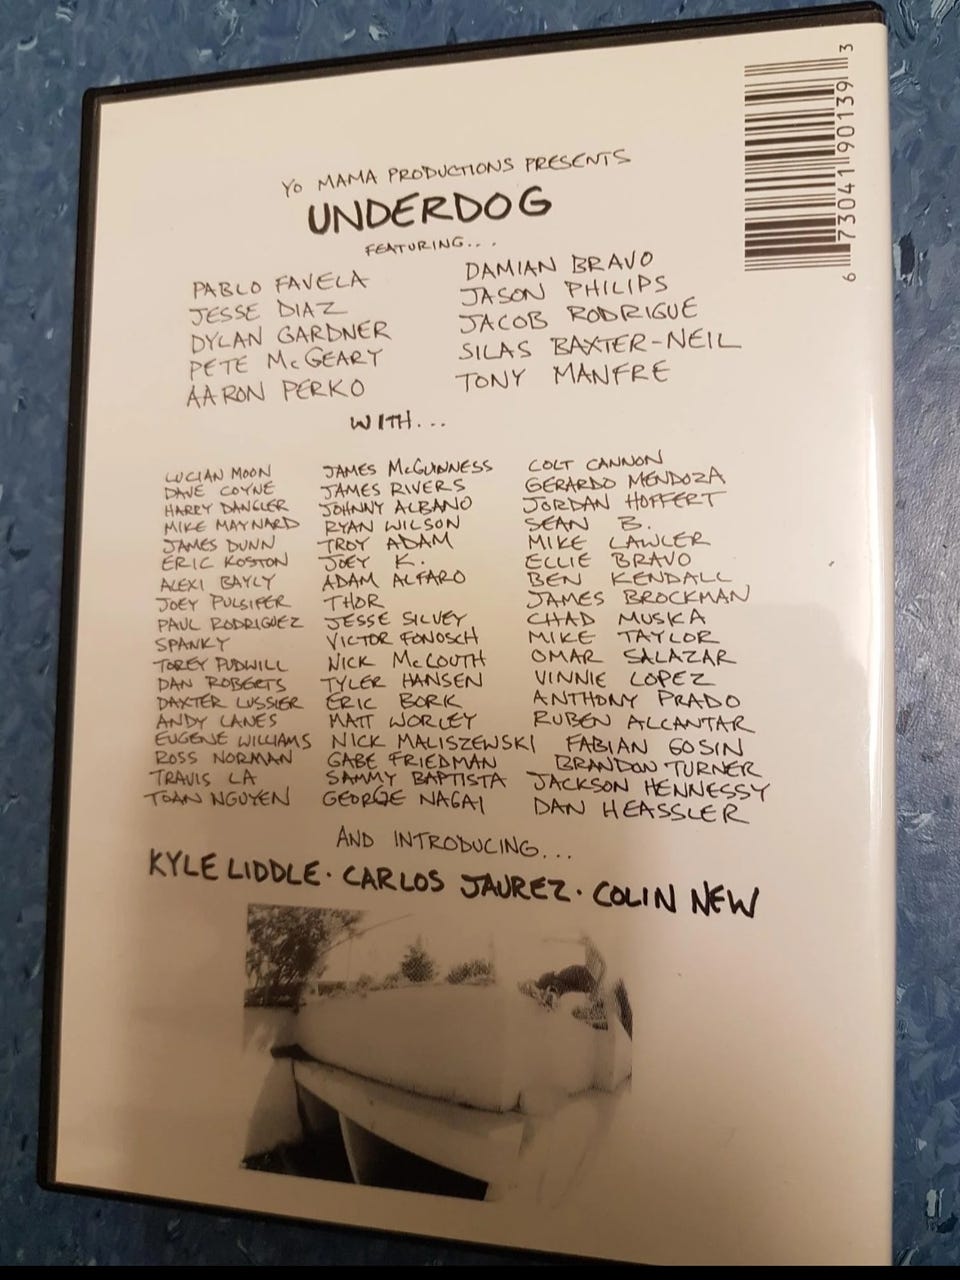 YO MAMA PRODUCTIONS PRESENTS
UNDERDOG
FEATURING...
PABLO FAVELA
JESSE DIAZ
DYLAN GARDNER
PETE McGEARY
AARON PERKO
DAMIAN BRAVO
JASON PHILIPS
JACOB RODRIGUE
SILAS BAXTER-NEIL
TONY MANFRE
WITH...
LUCIAN MOON
DAVE COYNE
HARRY DANGLER
MIKE MAYNARD
JAMES DUNN
ERIC KOSTON
ALEXI BAYLY
JOEY PULSIFER
PAUL RODRIGUEZ
SPANKY
TOREY PUDWILL
DAN ROBERTS
DAXTER LUSSIER
ANDY LANES
EUGENE WILLIAMS
ROSS NORMAN
TRAVIS LA
TOAN NGUYEN
JAMES McGUINNESS
JAMES RIVERS
JOHNNY ALBANO
RYAN WILSON
TROY ADAM
JOEY K.
ADAM ALFARO
THOR
JESSE SILVEY
VICTOR FONOSCH
NICK McLOUTH
TYLER HANSEN
ERIC BORK
MATT WORLEY
NICK MALISZEWSKI
GABE FRIEDMAN
SAMMY BAPTISTA
GEORGE NAGAI
COLT CANNON
GERARDO MENDOZA
JORDAN HOFFERT
SEAN B.
MIKE LAWLER
ELLIE BRAVO
BEN KENDALL
JAMES BROCKMAN
CHAD MUSKA
MIKE TAYLOR
OMAR SALAZAR
VINNIE LOPEZ
ANTHONY PRADO
RUBEN ALCANTAR
FABIAN GOSIN
BRANDON TURNER
JACKSON HENNESSY
DAN HEASSLER
AND INTRODUCING...
KYLE LIDDLE · CARLOS JAUREZ · COLIN NEW
6 73041 90139 3